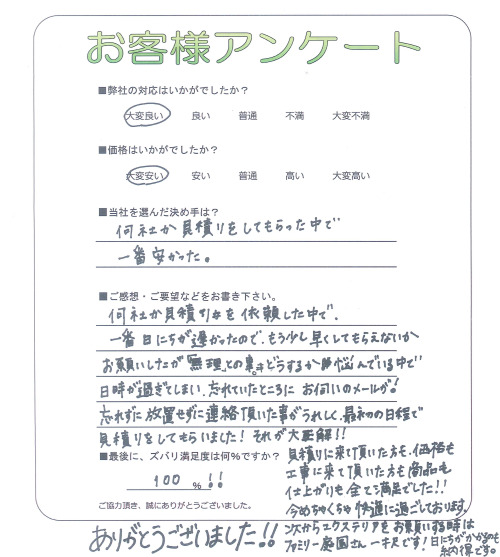 お客様アンケート
■弊社の対応はいかがでしたか？
大変良い 良い 普通 不満 大変不満
■価格はいかがでしたか？
大変安い 安い 普通 高い 大変高い
■当社を選んだ決め手は？
何社か見積りをしてもらった中で
一番安かった。
■ご感想・ご要望などをお書き下さい。
何社か見積りを依頼した中で、
一番日にちが遅かったので、もう少し早くしてもらえないか
お願いしたが「無理」との事。どうするか悩んでいる中で
日時が過ぎてしまい、忘れていたところに お伺いのメールが！
忘れずに放置せずに連絡頂いた事がうれしく、最初の日程で
見積りをしてもらいました！それが大正解！！
■最後に、ズバリ満足度は何％ですか？
100 ％！！
ご協力頂き、誠にありがとうございました。
見積りに来て頂いた方も、価格も
工事に来て頂いた方も商品も
仕上がりも全て満足でした！！
今めちゃくちゃ快適に過ごしております。
ありがとうございました！！
次からエクステリアをお願いする時は
ファミリー庭園さん一キスです！日にちがかかるの
納得です。